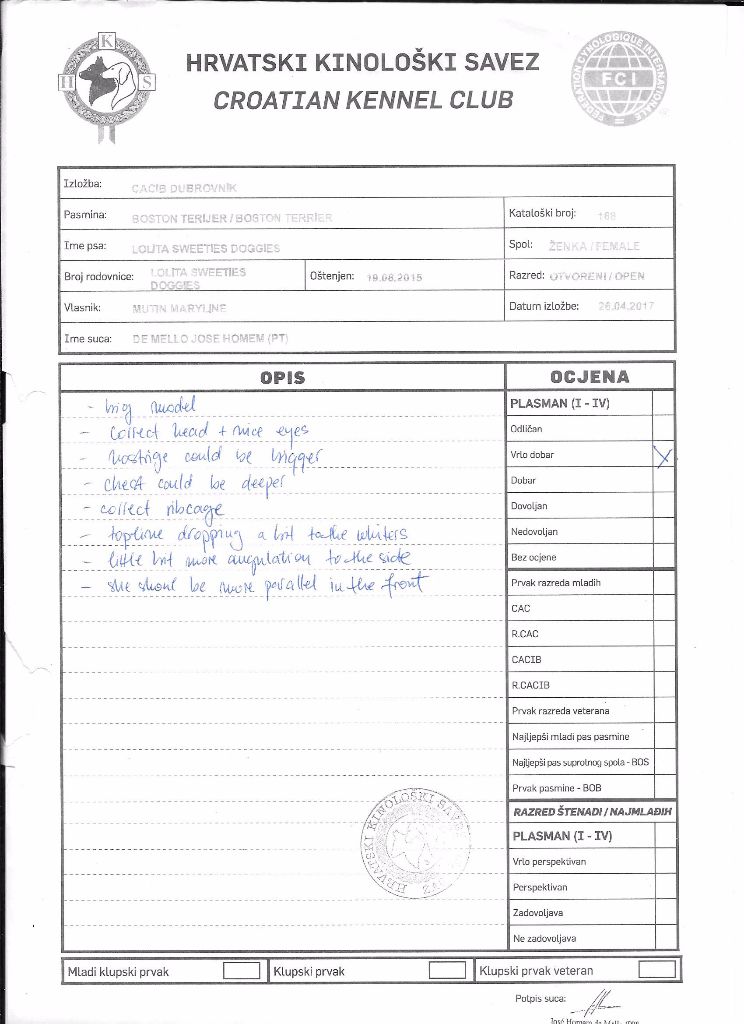 H K S
HRVATSKI KINOLOŠKI SAVEZ
CROATIAN KENNEL CLUB
FEDERATION CYNOLOGIQUE INTERNATIONALE
FCI
Izložba: CACIB DUBROVNIK
Pasmina: BOSTON TERIJER / BOSTON TERRIER
Kataloški broj: 168
Ime psa: LOLITA SWEETIES DOGGIES
Spol: ŽENKA / FEMALE
Broj rodovnice: LOLITA SWEETIES DOGGIES
Oštenjen: 19.08.2015
Razred: OTVORENI / OPEN
Vlasnik: MUTIN MARYLINE
Datum izložbe: 26.04.2017
Ime suca: DE MELLO JOSE HOMEM (PT)
OPIS
- big model
- correct head + nice eyes
- nostrige could be bigger
- chest could be deeper
- correct ribcage
- topline dropping a bit to the whiters
- little bit more angulation to the side
- she shoul be more parallel in the front
OCJENA
PLASMAN (I - IV)
Odličan
Vrlo dobar X
Dobar
Dovoljan
Nedovoljan
Bez ocjene
Prvak razreda mladih
CAC
R.CAC
CACIB
R.CACIB
Prvak razreda veterana
Najljepši mladi pas pasmine
Najljepši pas suprotnog spola - BOS
Prvak pasmine - BOB
RAZRED ŠTENADI / NAJMLAĐIH
PLASMAN (I - IV)
Vrlo perspektivan
Perspektivan
Zadovoljava
Ne zadovoljava
HRVATSKI KINOLOŠKI SAVEZ
Mladi klupski prvak
Klupski prvak
Klupski prvak veteran
Potpis suca:
José Homem de